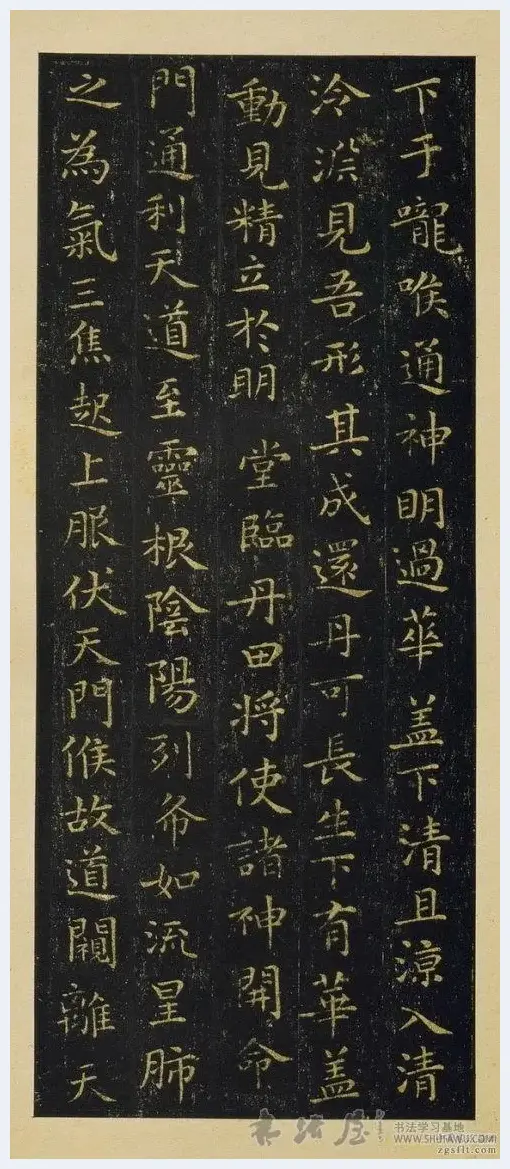 下于嚨喉通神明過華盖下清且涼入清
泠淵見吾形其成還丹可長生下有華盖
動見精立於明堂臨丹田将使諸神開命
門通利天道至靈根陰陽列布如流星肺
之為氣三焦起上服伏天門候故道闚離天
书法屋
书法学习基地
WWW.SHUFAWU.COM
zgsflt.com